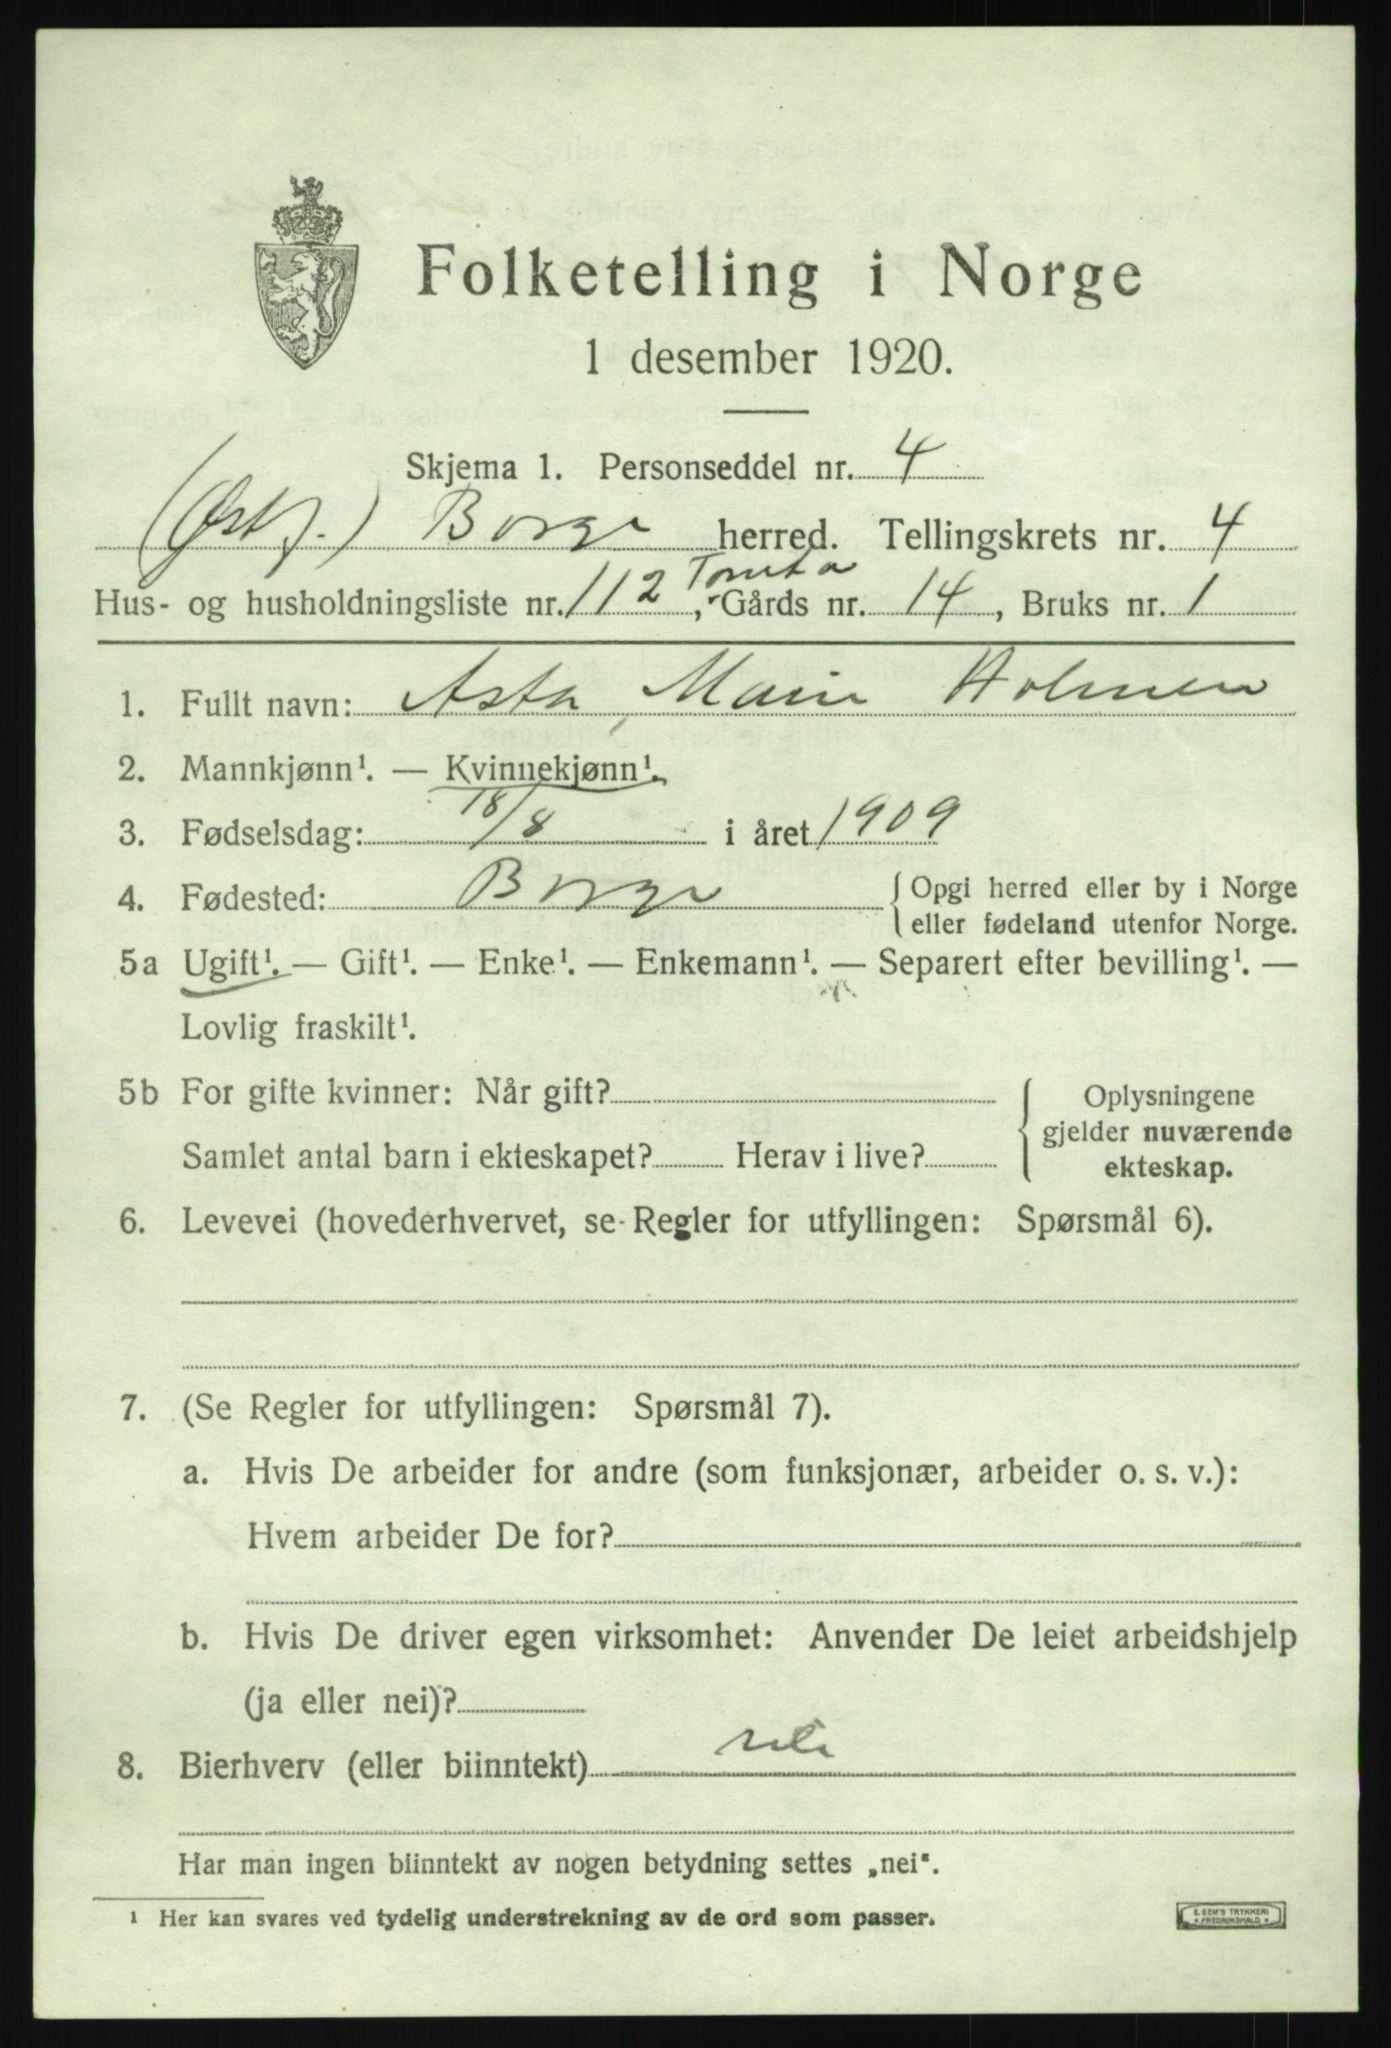 Folketelling i Norge
1 desember 1920.
Skjema 1. Personseddel nr. 4
(Østf.) Borge herred. Tellingskrets nr. 4
Tomta
Hus- og husholdningsliste nr. 112, Gårds nr. 14, Bruks nr. 1
1. Fullt navn: Asta Marie Holmen
2. Mannkjønn¹. — Kvinnekjønn¹.
3. Fødselsdag: 18/8 i året 1909
4. Fødested: Borge { Opgi herred eller by i Norge
eller fødeland utenfor Norge.
5a Ugift¹. — Gift¹. — Enke¹. — Enkemann¹. — Separert efter bevilling¹. —
Lovlig fraskilt¹.
5b For gifte kvinner: Når gift? { Oplysningene
gjelder nuværende
Samlet antal barn i ekteskapet? Herav i live? ekteskap.
6. Levevei (hovederhvervet, se Regler for utfyllingen: Spørsmål 6).
7. (Se Regler for utfyllingen: Spørsmål 7).
a. Hvis De arbeider for andre (som funksjonær, arbeider o. s. v.):
Hvem arbeider De for?
b. Hvis De driver egen virksomhet: Anvender De leiet arbeidshjelp
(ja eller nei)?
8. Bierhverv (eller biinntekt) nei
Har man ingen biinntekt av nogen betydning settes „nei".
¹ Her kan svares ved tydelig understrekning av de ord som passer.
E. SEM'S TRYKKERI
* FREDRIKSHALD *